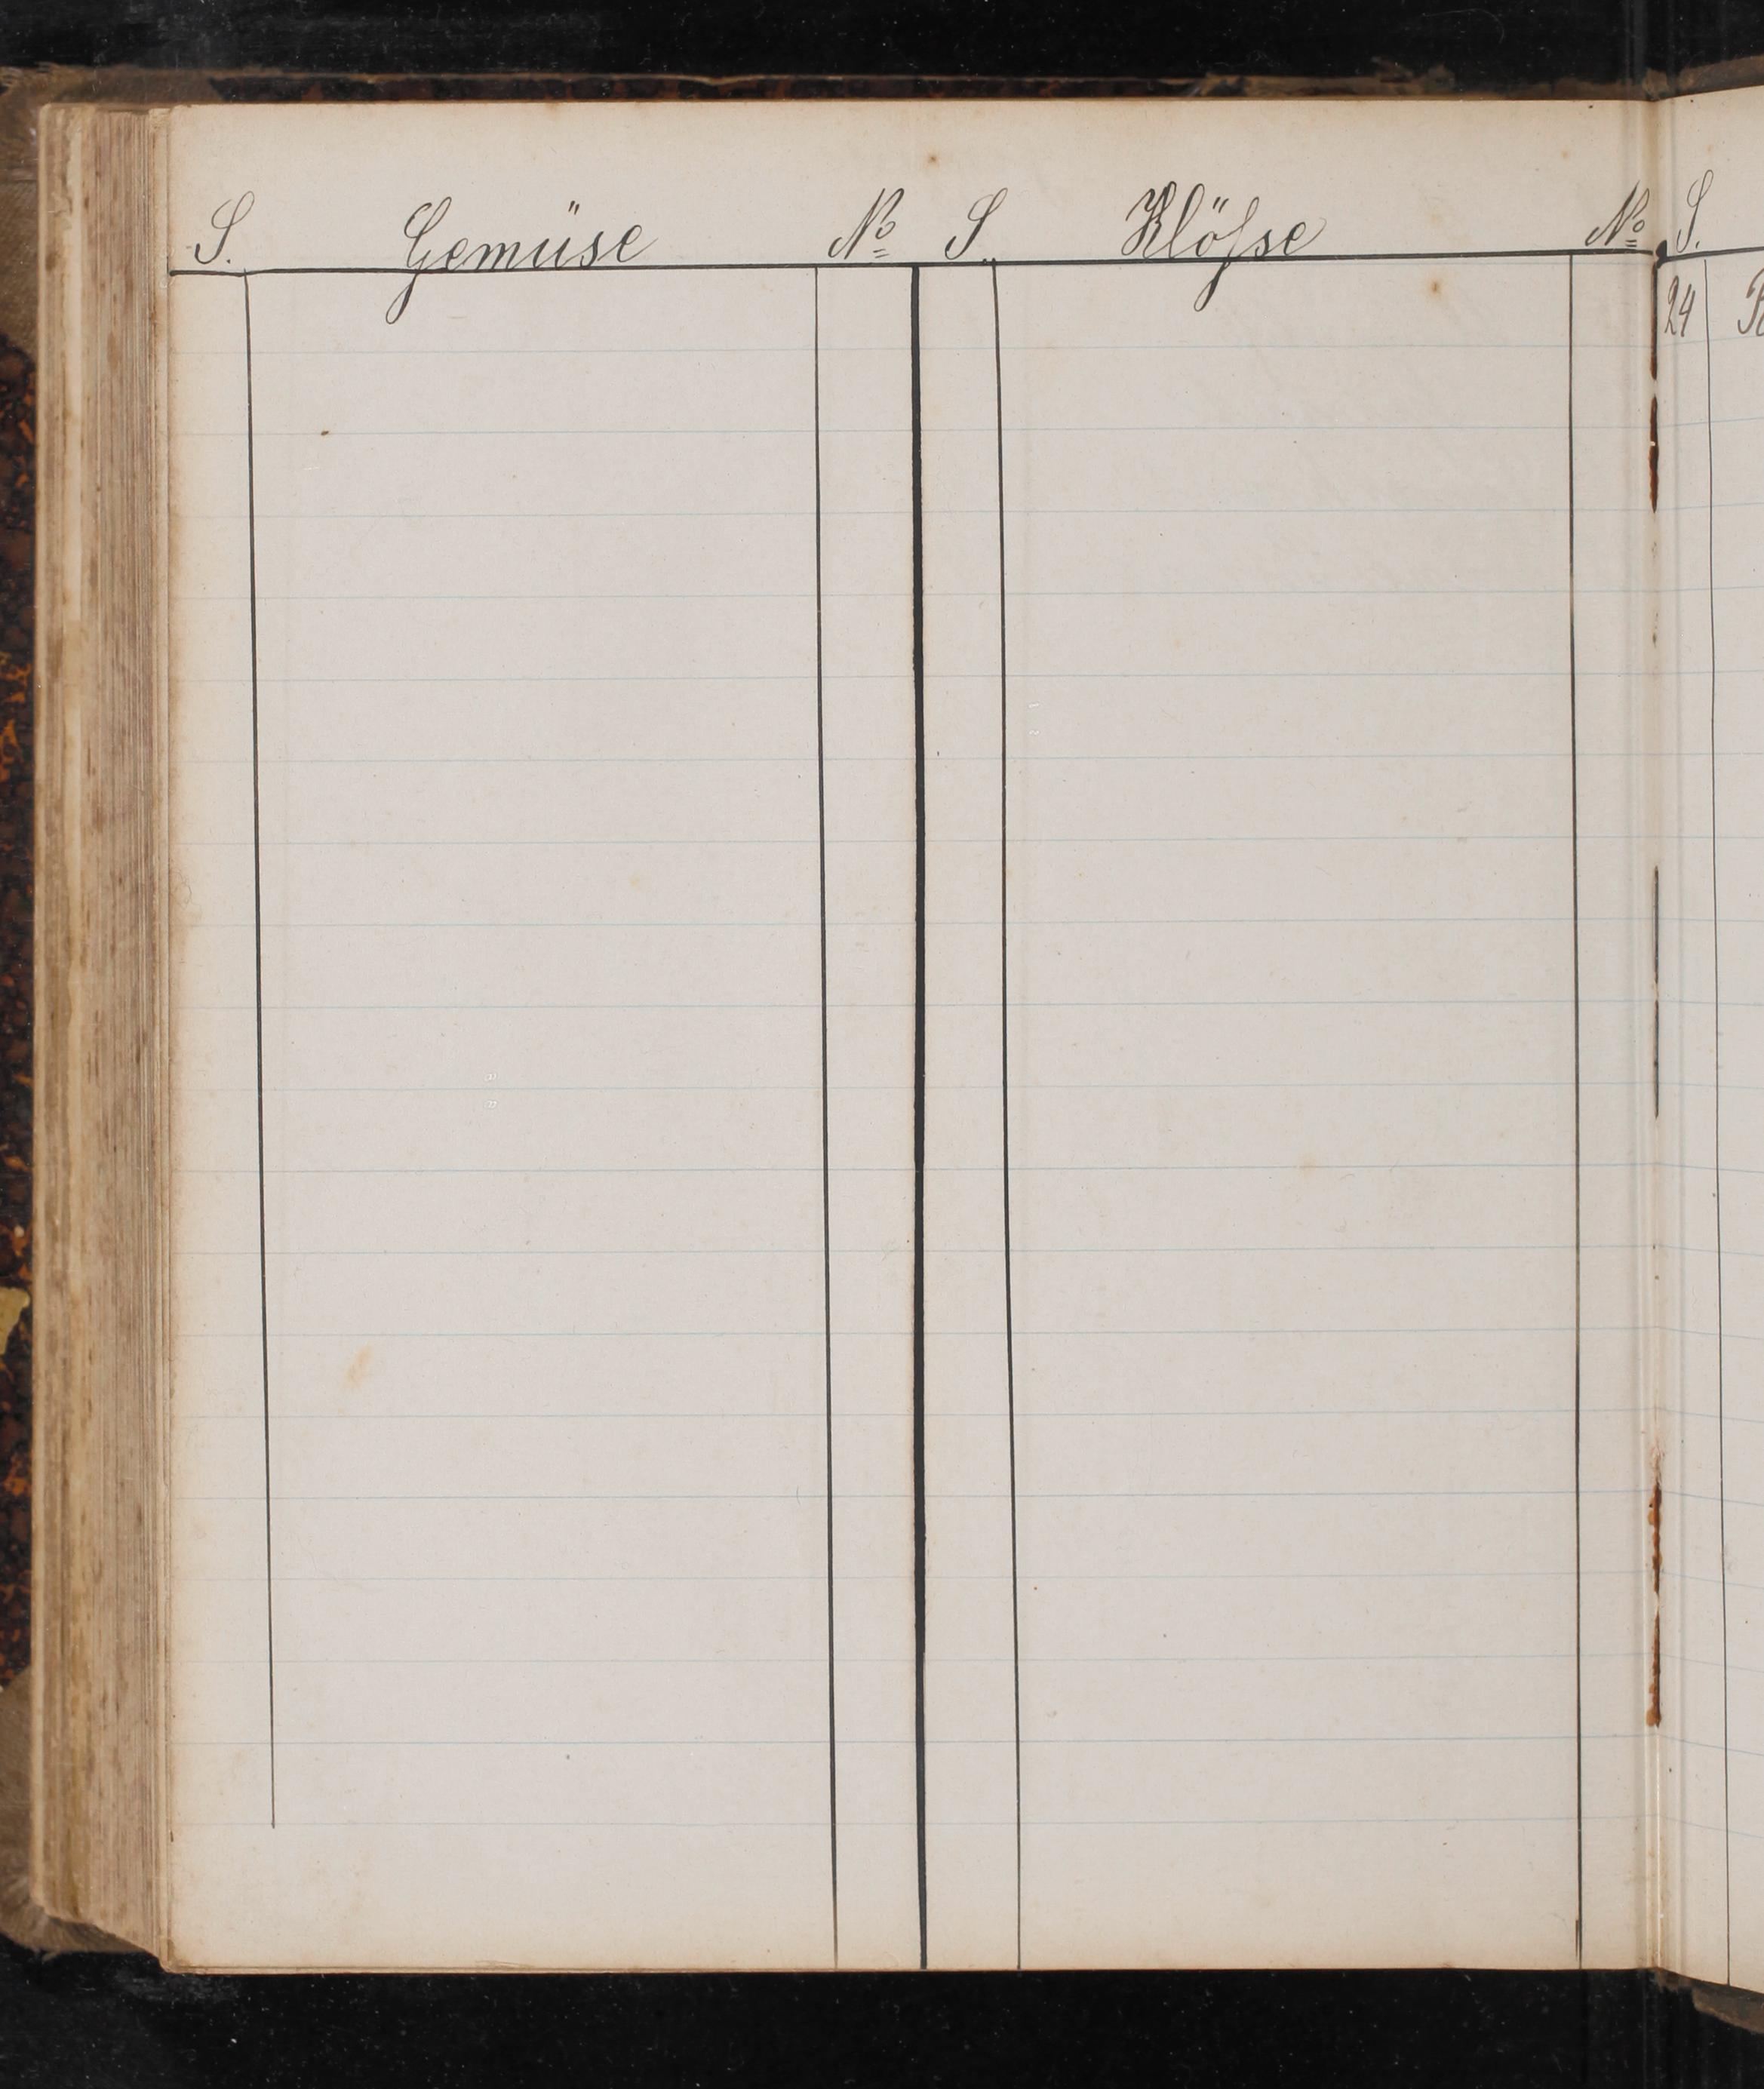 S. Gemüse No S. Klöſse No S.
24